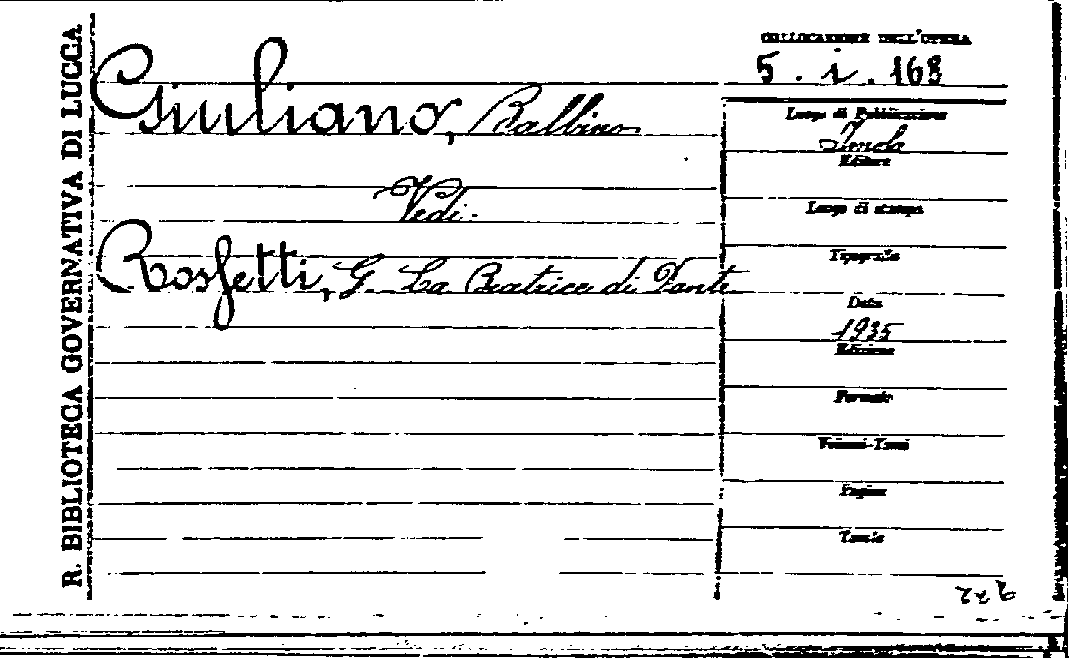 R. BIBLIOTECA GOVERNATIVA DI LUCCA
Giuliano, Balbino
Vedi.
Rossetti, G. La Beatrice di Dante
COLLOCAZIONE DELL'OPERA
5 . i . 168
Luogo di Pubblicazione
Imola
Editore
Luogo di stampa
Tipografia
Data
1935
Edizione
Formato
Volumi-Tomi
Pagine
Tavole